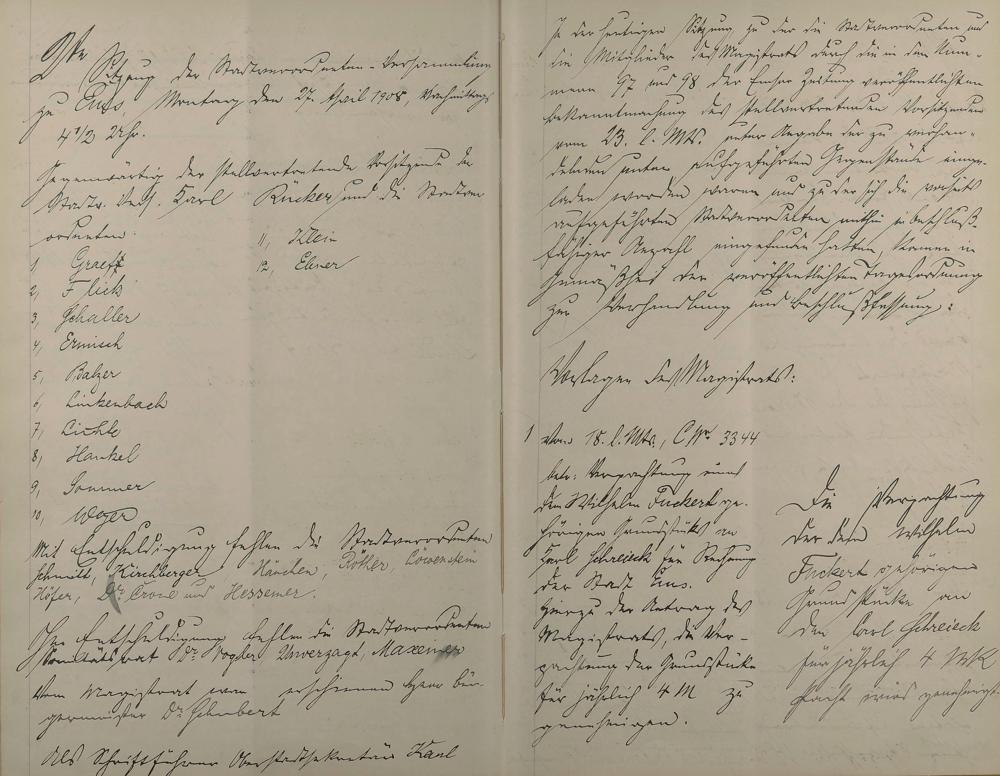 Sitzung der Stadtverordneten-Versammlung
zu Ems, Montag, den 27. April 1908, Nachmittags
4 1/2 Uhr.
Gegenwärtig der stellvertretende Vorsitzende der
Stadtv. Vers. Karl Rücker und die Stadtver
ordneten:
1, Graeff
2, Flick
3, Schaller
4, Ermisch
5, Balzer
6, Linkenbach
7, Lichte
8, Hankel
9, Sommer
10,
11, Klein
12, Ebner
Mit Entschuldigung fehlen die Stadtverordneten
Schmitt, Kirchberger, Hänchen, Röther, Löwenstein
Höfer, Dr. Crone und Hessemer.
Ohne Entschuldigung fehlen die Stadtverordneten
Sanitätsrat Dr. Vogler, Unverzagt, Maxeiner
Vom Magistrat war erschienen Herr Bür-
germeister Dr. Schubert
Als Schriftführer Oberstadtsekretär Kaul
In der heutigen Sitzung zu der die Stadtverordneten und
die Mitglieder des Magistrats durch die in den Num-
mern 97 und 98 der Emser Zeitung veröffentlichten
Bekanntmachung des stellvertretenden Vorsitzenden
vom 23. l. Mts. unter Angabe der zu verhan-
delnden unten aufgeführten Gegenstände einge-
laden worden waren und zu der sich die vorseits
aufgeführten Stadtverordneten mithin in beschluß-
fähiger Anzahl eingefunden hatten, kamen in
Gemäßheit der veröffentlichten Tagesordnung
zur Verhandlung und Beschlußfassung:
Vorlagen des Magistrats:
1 vom 18. l. Mts., C No. 3344
betr. Verpachtung eines
dem Wilhelm Fuckert ge-
hörigen Grundstücks an
Karl Schreieck für Rechnung
der Stadt Ems.
Hierzu der Antrag des
Magistrats, die Ver-
pachtung der Grundstücke
für jährlich 4 M zu
genehmigen.
Die Verpachtung
der dem Wilhelm
Fuckert gehörigen
Grundstücke an
den Carl Schreieck
für jährlich 4 MK
Pacht wird genehmigt.